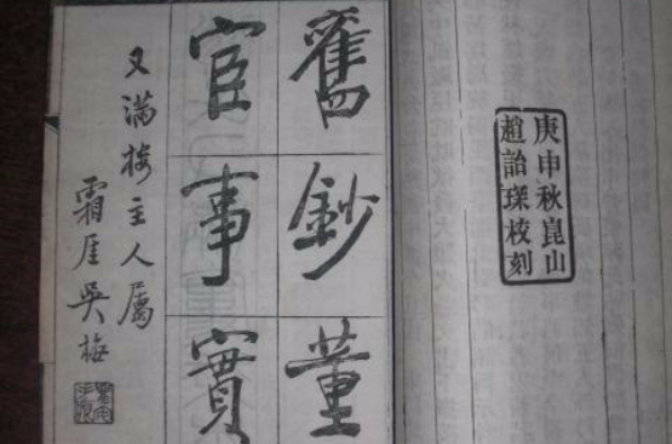 庚申秋崑山
趙詒琛校刻
舊鈔董
宦事實
又滿樓主人屬
霜厓吳梅